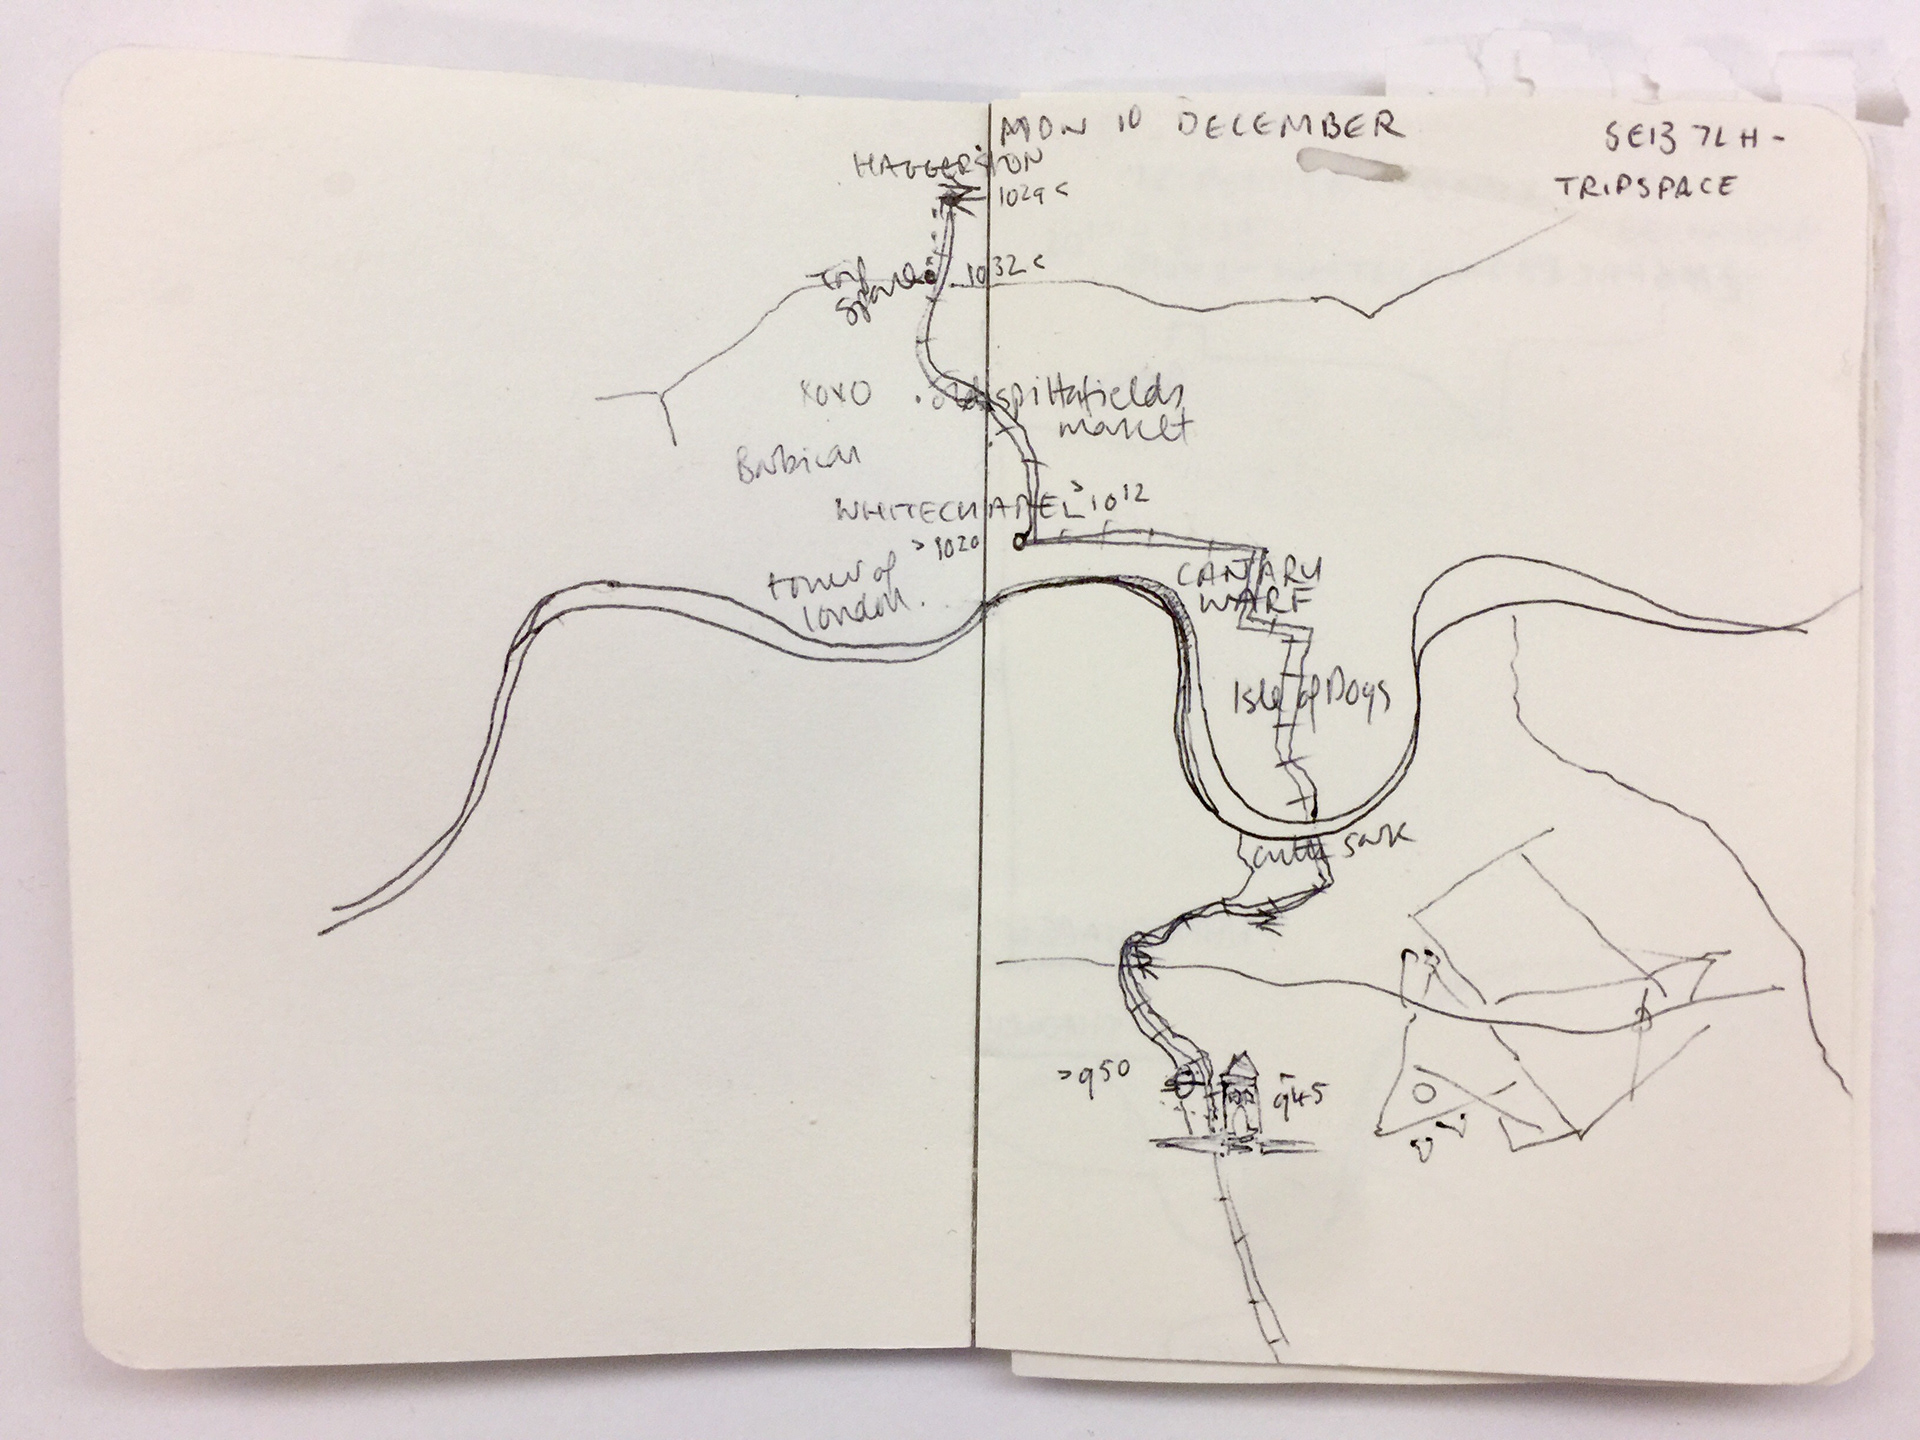 MON 10 DECEMBER
SE13 7LH -
TRIPSPACE
HAGGERSTON
1029 <
Trip
space
1032 <
XOYO
old spittafields
market
Barbican
WHITECHAPEL > 1012
> 1020
tower of
london.
CANARY
WARF
Isle of Dogs
cutty sark
> 950
945